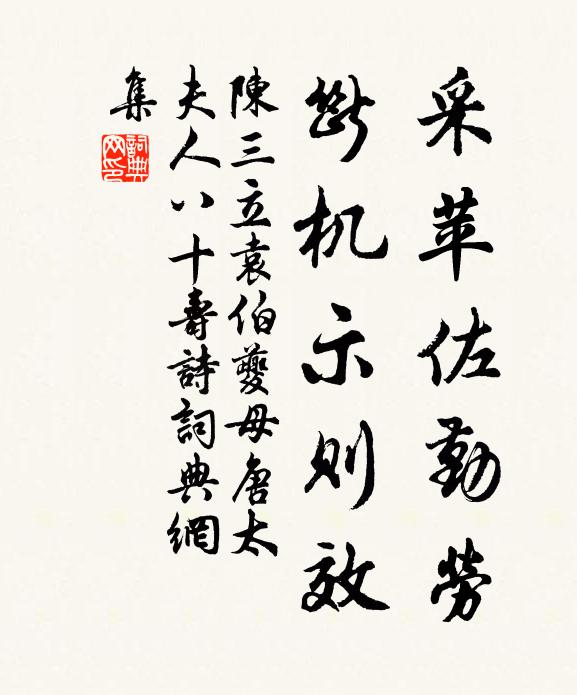 采苹佐勤勞
斷机示则效
陳三立袁伯夔母唐太
夫人八十壽詩詞典網
集
詞典網印